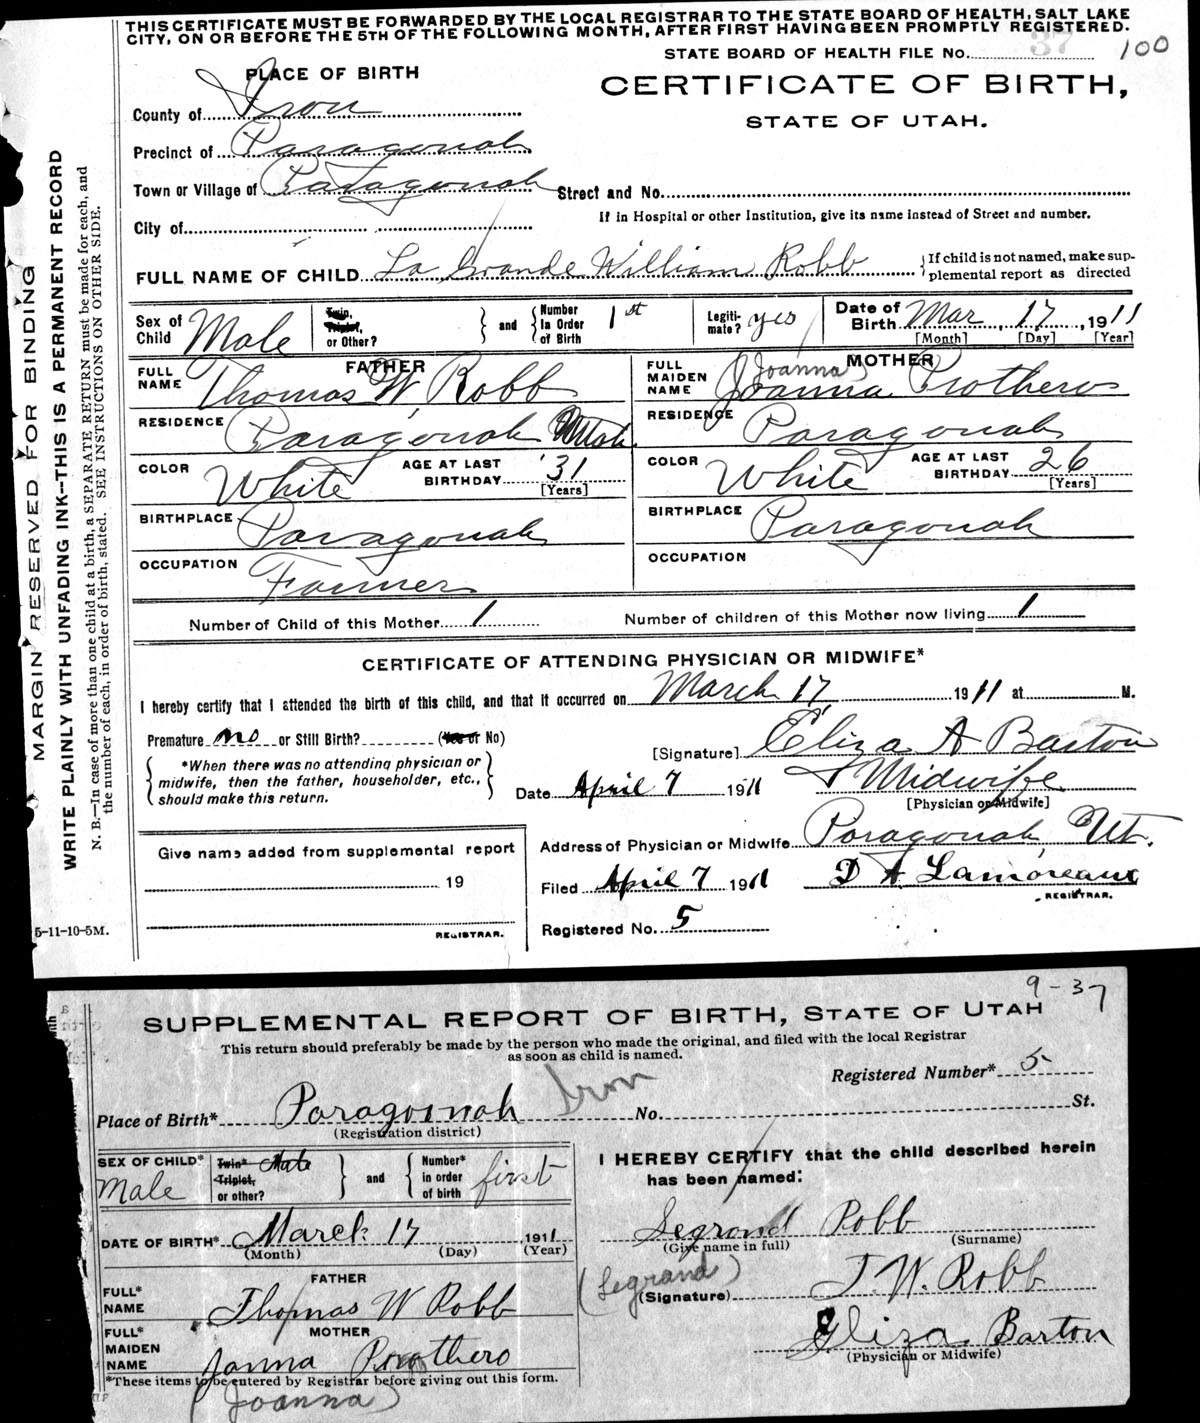 THIS CERTIFICATE MUST BE FORWARDED BY THE LOCAL REGISTRAR TO THE STATE BOARD OF HEALTH, SALT LAKE
CITY, ON OR BEFORE THE 5TH OF THE FOLLOWING MONTH, AFTER FIRST HAVING BEEN PROMPTLY REGISTERED.
STATE BOARD OF HEALTH FILE No. 37 100
PLACE OF BIRTH
CERTIFICATE OF BIRTH,
STATE OF UTAH.
County of Iron
Precinct of Paragonah
Town or Village of Paragonah Street and No.
If in Hospital or other Institution, give its name instead of Street and number.
City of
FULL NAME OF CHILD La Grande William Robb {If child is not named, make sup-
plemental report as directed
Sex of Child Male Twin, Triplet, or Other? } and { Number In Order of Birth 1st Legiti- mate? yes Date of Birth Mar, 17, 1911
[Month] [Day] [Year]
FATHER MOTHER
FULL NAME Thomas W Robb FULL MAIDEN NAME Joanna Joanna Prothero
RESIDENCE Paragonah Utah RESIDENCE Paragonah
COLOR White AGE AT LAST BIRTHDAY 31 [Years] COLOR White AGE AT LAST BIRTHDAY 26 [Years]
BIRTHPLACE Paragonah BIRTHPLACE Paragonah
OCCUPATION Farmer OCCUPATION
Number of Child of this Mother 1 Number of children of this Mother now living 1
CERTIFICATE OF ATTENDING PHYSICIAN OR MIDWIFE*
I hereby certify that I attended the birth of this child, and that it occurred on March 17 1911 at M.
Premature no or Still Birth? (Yes or No)
[Signature] Eliza A Barton
{ *When there was no attending physician or
midwife, then the father, householder, etc.,
should make this return. }
Date April 7 1911 Midwife
[Physician or Midwife]
Address of Physician or Midwife Paragonah, Ut.
Give name added from supplemental report
19
REGISTRAR.
Filed April 7 1911 D A Lamoreaux
REGISTRAR.
Registered No. 5
5-11-10-5M.
MARGIN RESERVED FOR BINDING
WRITE PLAINLY WITH UNFADING INK--THIS IS A PERMANENT RECORD
N. B.—In case of more than one child at a birth, a SEPARATE RETURN must be made for each, and
the number of each, in order of birth, stated. SEE INSTRUCTIONS ON OTHER SIDE.
9-37
SUPPLEMENTAL REPORT OF BIRTH, STATE OF UTAH
This return should preferably be made by the person who made the original, and filed with the local Registrar
as soon as child is named.
Registered Number* 5
Place of Birth* Paragoonah Iron No. St.
(Registration district)
SEX OF CHILD* Male Twin* Triplet, or other? } and { Number* in order of birth first
I HEREBY CERTIFY that the child described herein
has been named:
DATE OF BIRTH* March 17 1911
(Month) (Day) (Year)
Legrand Robb
(Give name in full) (Surname)
FATHER
FULL* NAME Thomas W Robb
(Legrand)
(Signature) T. W. Robb
MOTHER
FULL* MAIDEN NAME Janna Prothero
Eliza Barton
(Physician or Midwife)
*These items to be entered by Registrar before giving out this form.
(Joanna)